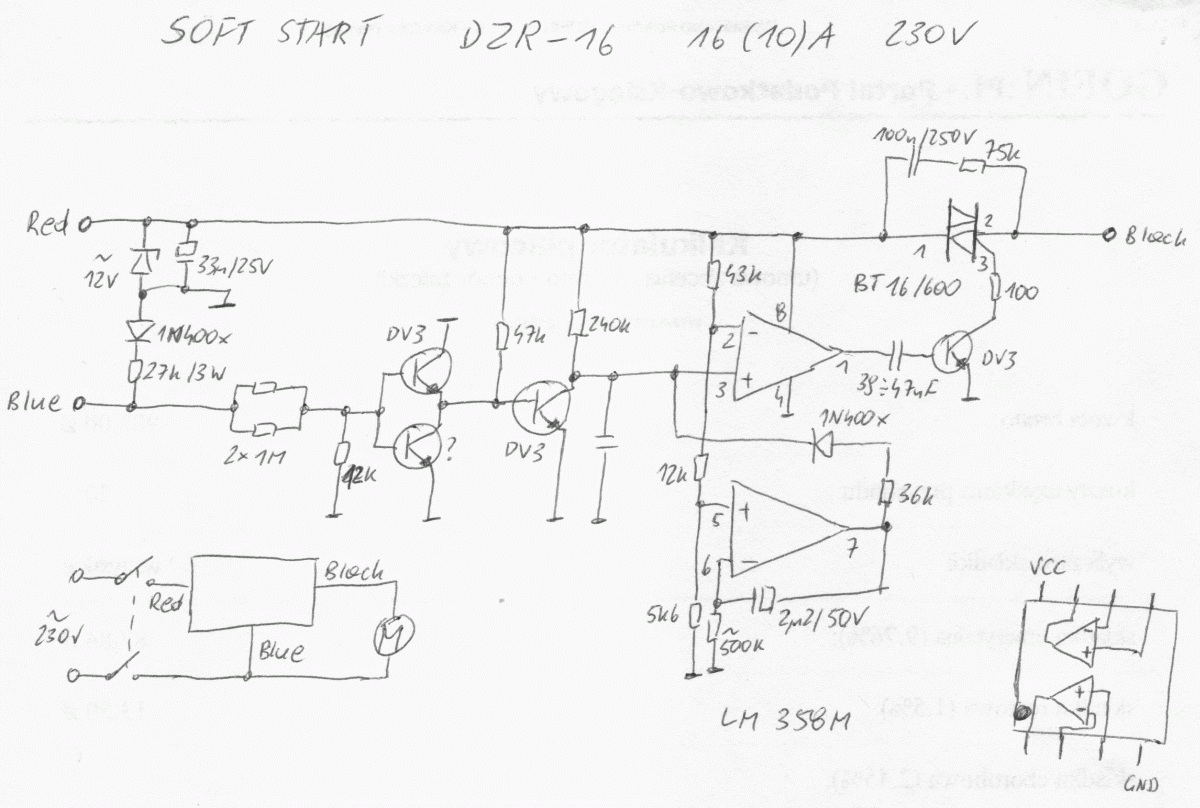 SOFT START DZR-16 16(10)A 230V
100n/250V
75k
Red
~12V
33m/25V
1N400x
27k/3W
Blue
2x1M
DV3
?
47k
DV3
240k
43k
2
-
3
+
8
4
1
38÷47nF
1
2
3
Black
BT16/600
100
DV3
1N400x
12k
36k
5
+
6
-
7
5k6
~500k
2µ2/50V
LM358M
~230V
Red
Black
Blue
M
VCC
+
+
-
GND